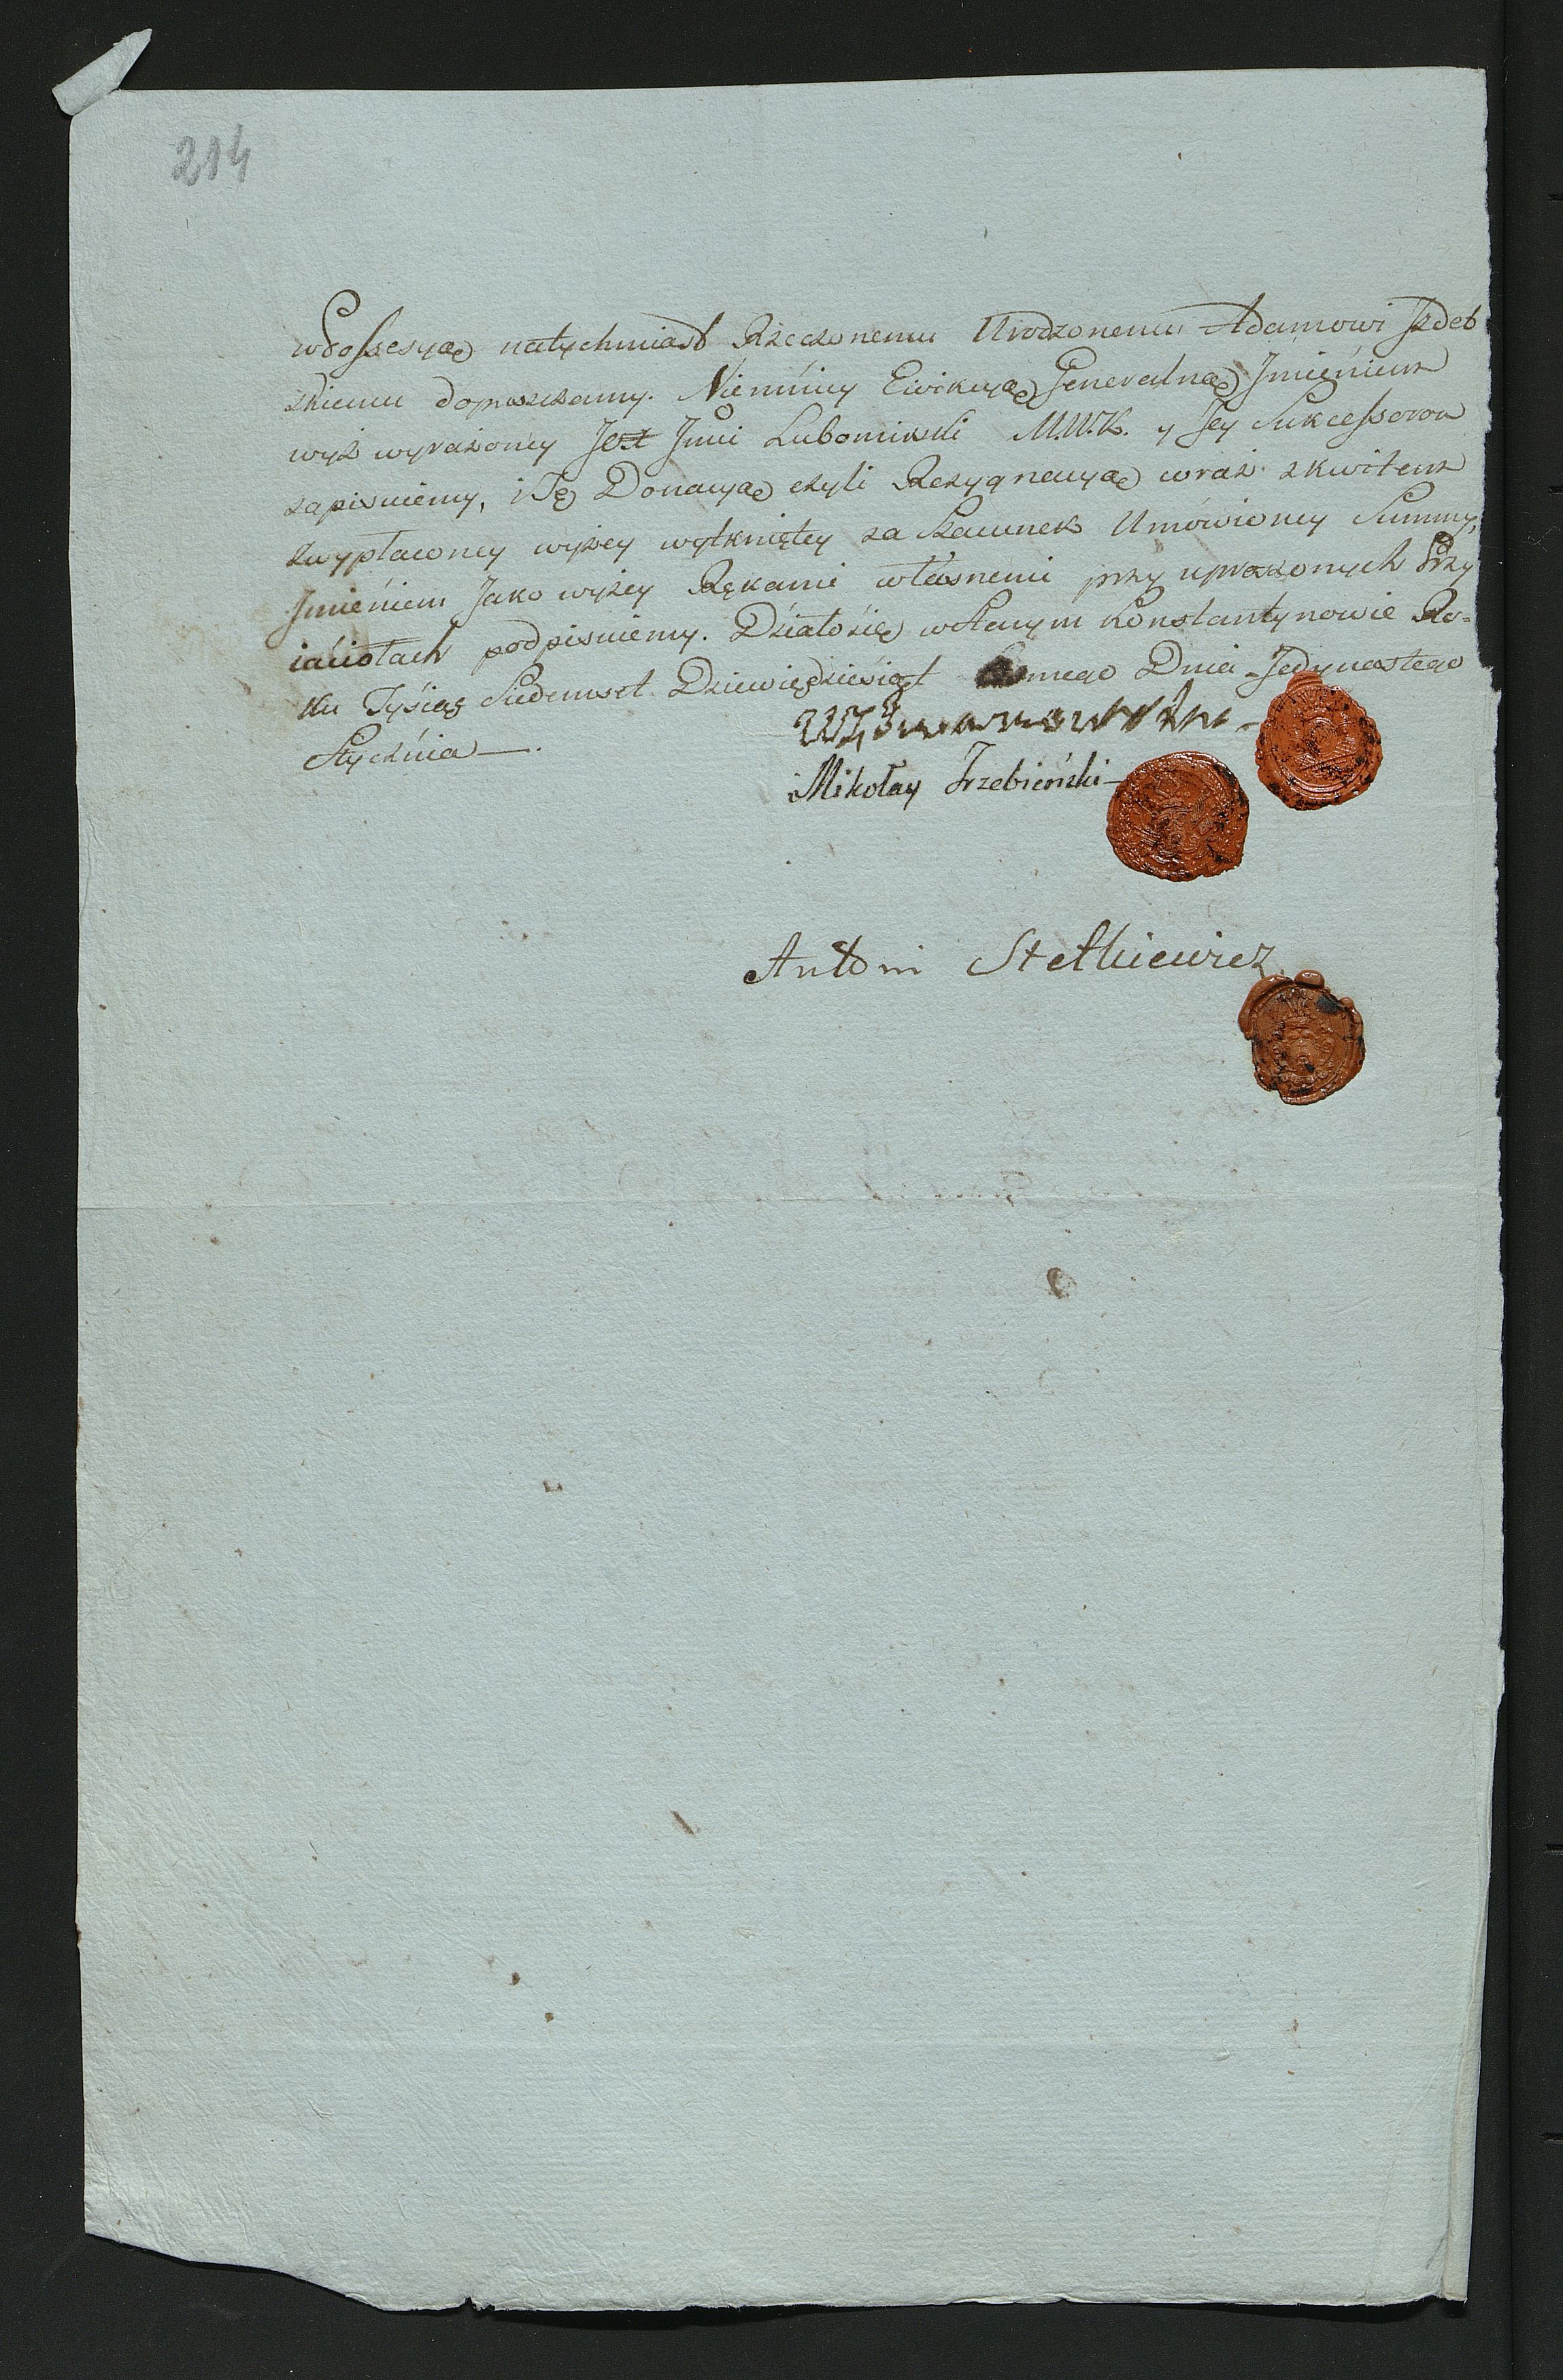 214
w Possesyąę natychmiast Rzeczonemu Urodzonemu Adamowi Jzdeb
skiemu dopuszczamy. Niemniey Ewikcyąę Generalnąę Jmieniem
wyż wyrażoney Jest Jmci Lubomirski M.W.K. y Jey Sukcessorow
zapisuiemy, i Tę Donacyąę czyli Rezygnacyąę wraz z kwitem
z wypłaconey wyżey wytkniętey za Szacunek Umowioney Summy,
Jmieniem Jako wyżey Rękami własnemi przy uproszonych Przy
iaciołach podpisuiemy. Działo się w Starym Konstantynowie Ro-
ku Tysiąc Siedemset Dziewięędziesiąt Osmego Dnia Jedynastego
Stycznia —.
Mikołay Trzebieński
Antoni Stetkiewicz